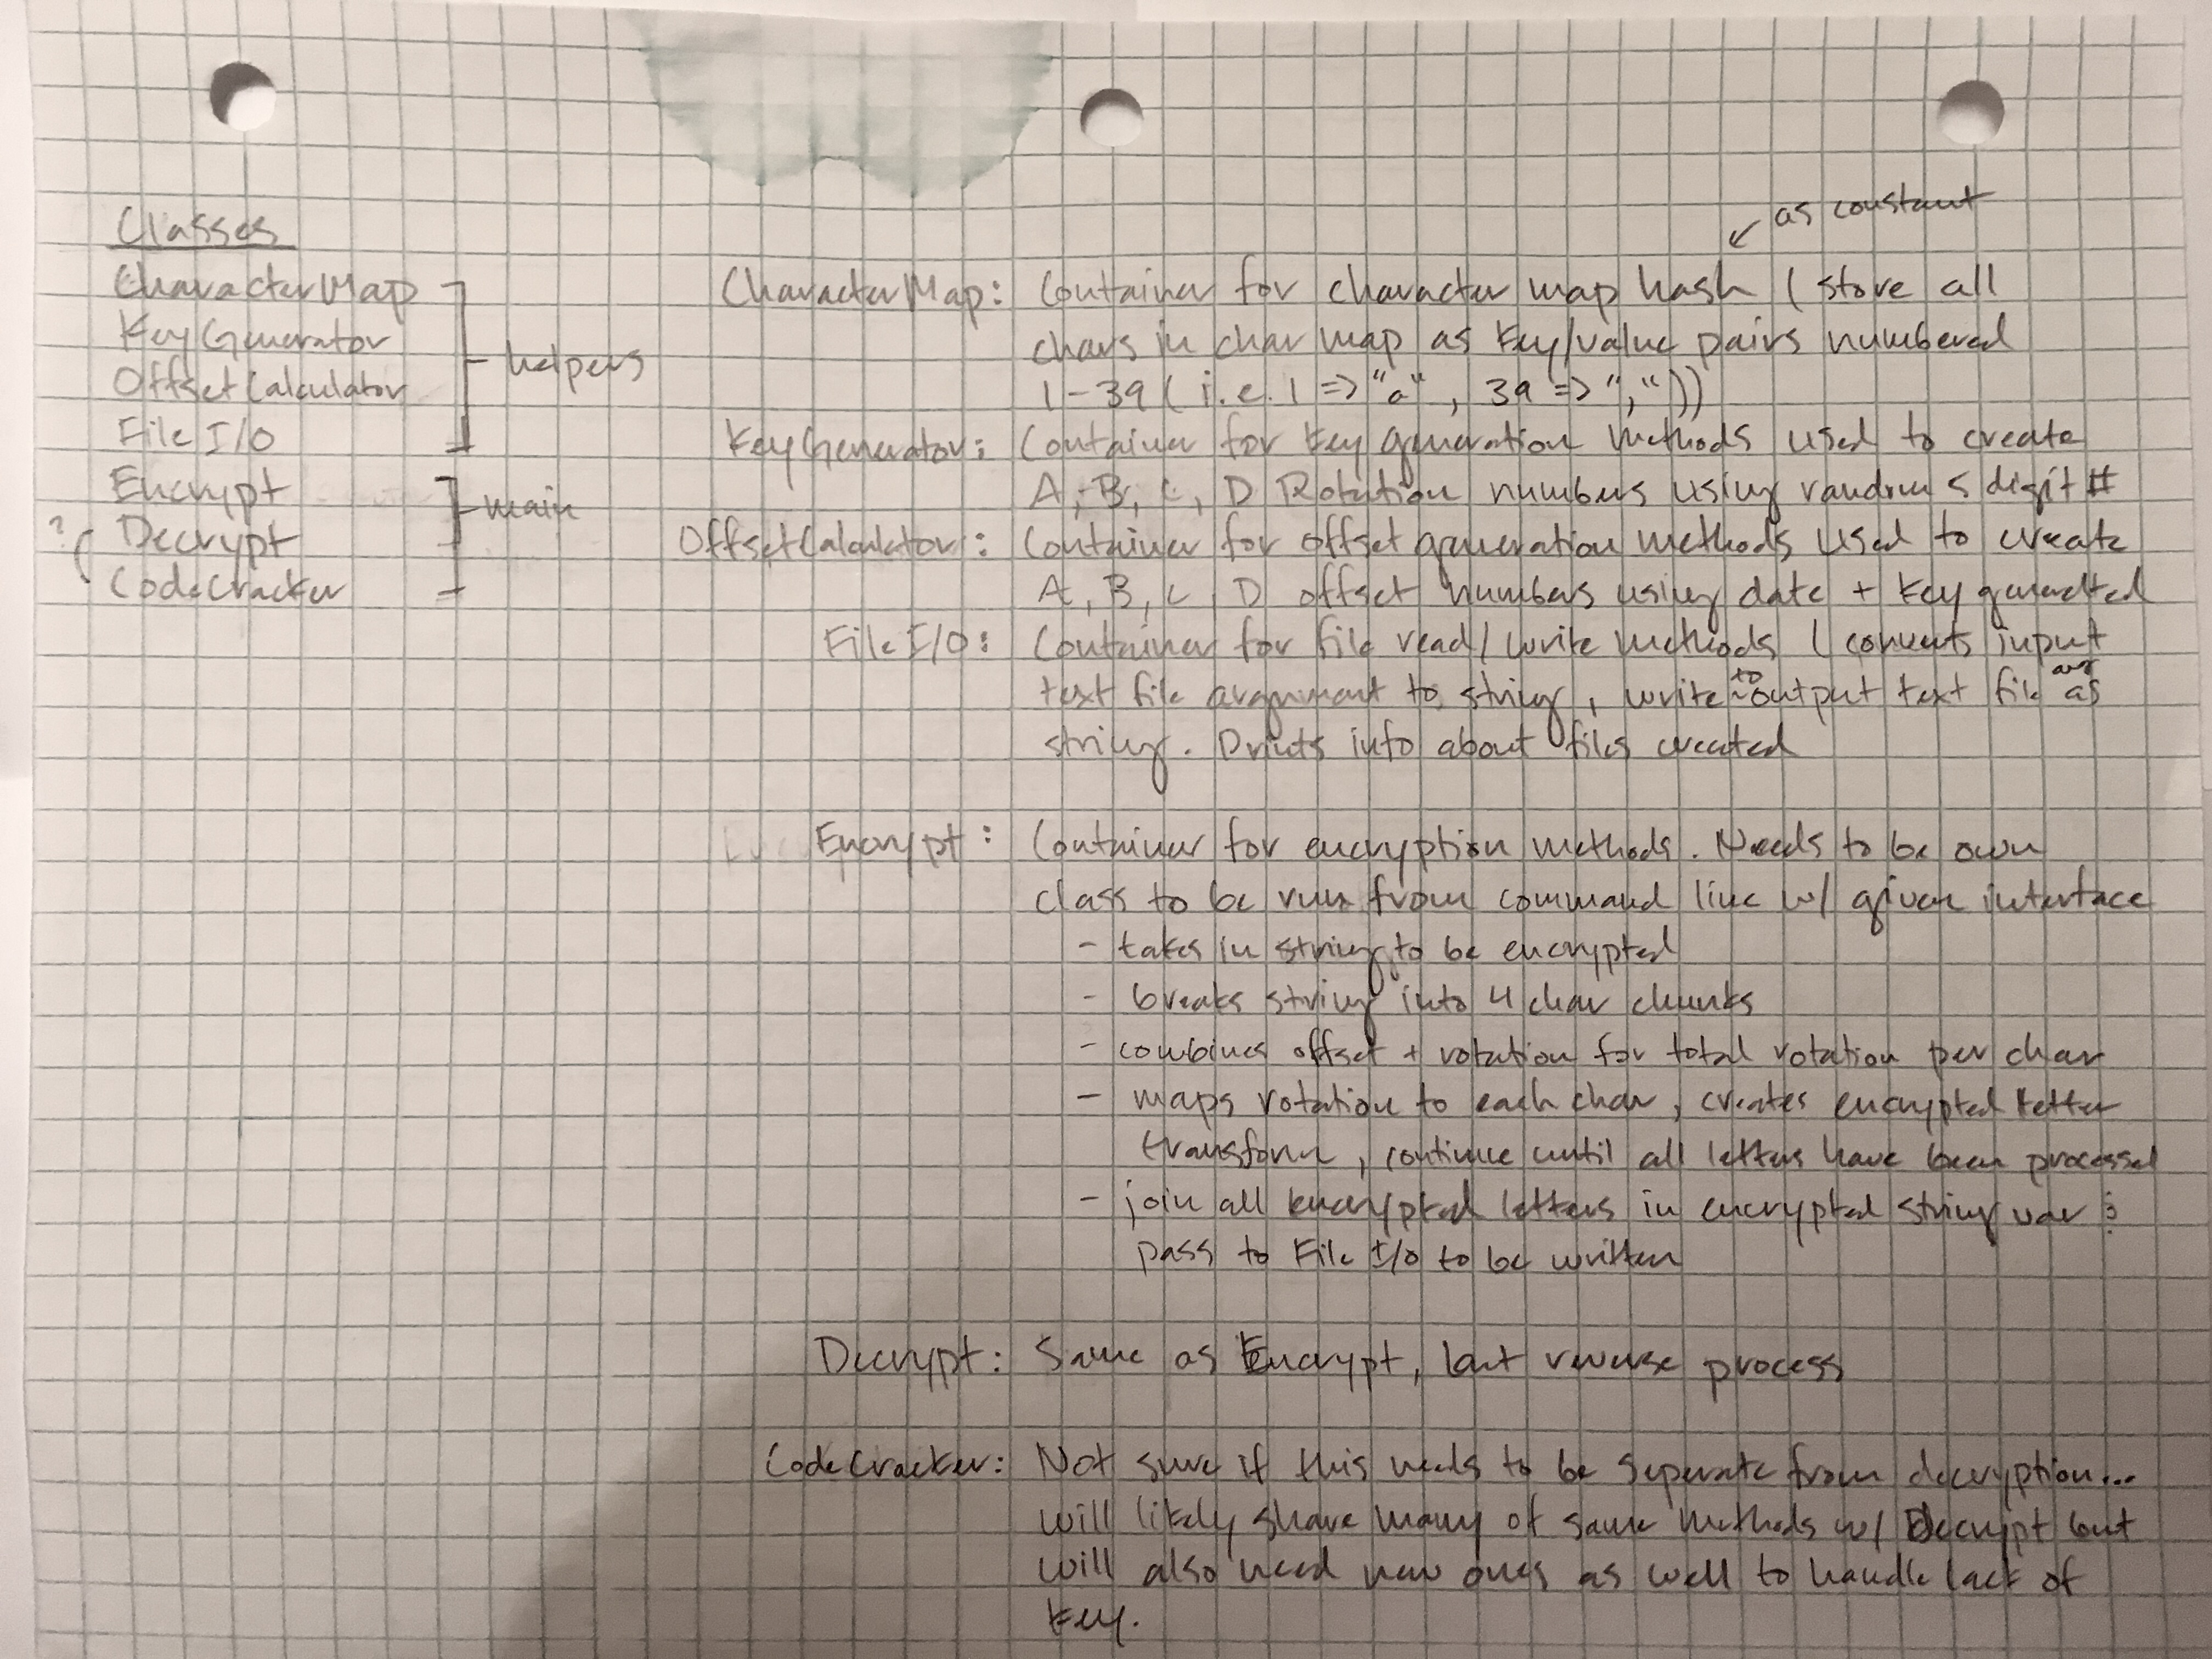 Classes
CharacterMap
KeyGenerator
OffsetCalculator
File I/O
helpers
Encrypt
Decrypt
CodeCracker
main
?
as constant
CharacterMap: Container for character map hash (store all
chars in char map as key/value pairs numbered
1-39 (i.e. 1 => "a", 39 => ","))
KeyGenerator: Container for key generation methods used to create
A, B, C, D Rotation numbers using random 5 digit #
OffsetCalculator: Container for offset generation methods used to create
A, B, C, D offset numbers using date + key generated
File I/O: Container for file read/write methods (converts input
text file argument to string, write to output text file arg as
string. Prints info about files created
Encrypt: Container for encryption methods. Needs to be own
class to be run from command line w/ given interface
- takes in string to be encrypted
- breaks string into 4 char chunks
- combines offset + rotation for total rotation per char
- maps rotation to each char, creates encrypted letter
transform, continue until all letters have been processed
- join all encrypted letters in encrypted string var &
pass to File I/O to be written
Decrypt: Same as Encrypt, but reverse process
CodeCracker: Not sure if this needs to be seperate from decryption...
will likely share many of same methods w/ Decrypt but
will also need new ones as well to handle lack of
key.